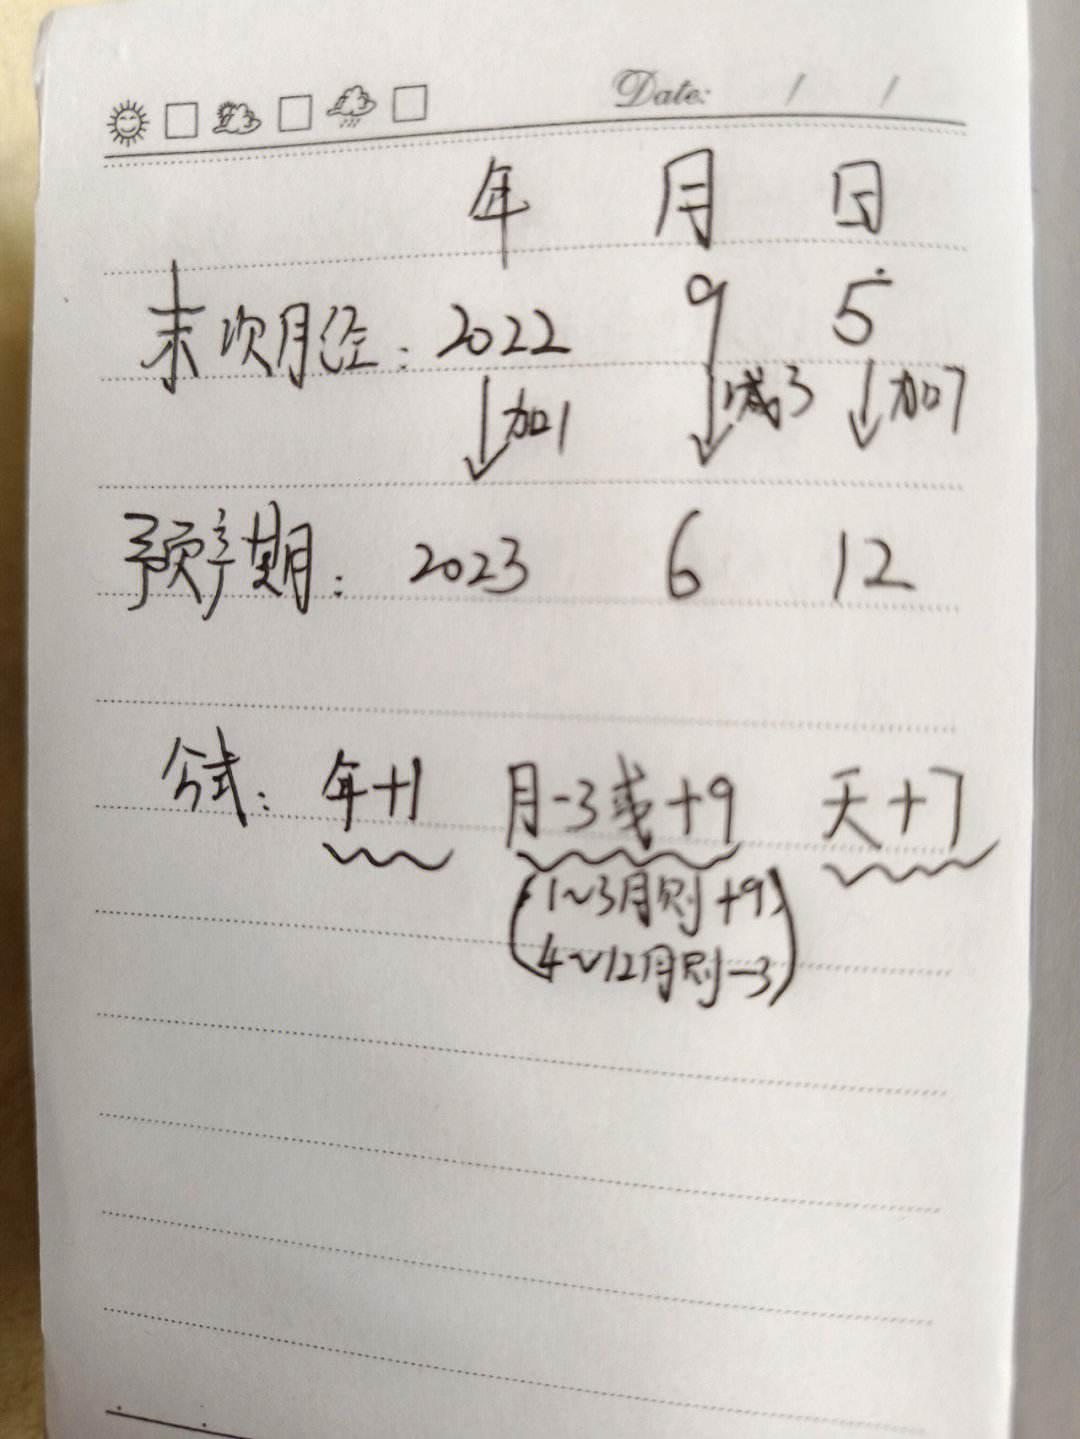 Date: / /
年 月 日
末次月经: 2022 9 5
加1 减3 加7
预产期: 2023 6 12
公式: 年+1 月-3或+9 天+7
(1~3月则+9
4~12月则-3)